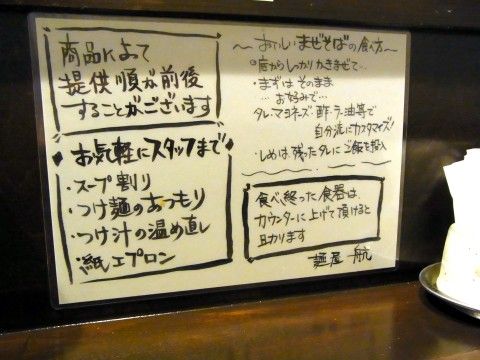 商品によって
提供順が前後
することがございます
お気軽にスタッフまで
・スープ割り
・つけ麺のあつもり
・つけ汁の温め直し
・紙エプロン
〜おいしいまぜそばの食べ方〜
◎底からしっかりかきまぜて…
・まずはそのまま
…お好みで…
タレ・マヨネーズ・酢・ラー油等で
自分流にカスタマイズ!
・しめは、残ったタレにご飯を投入
食べ終った食器は、
カウンターに上げて頂けると
助かります
麺屋 航